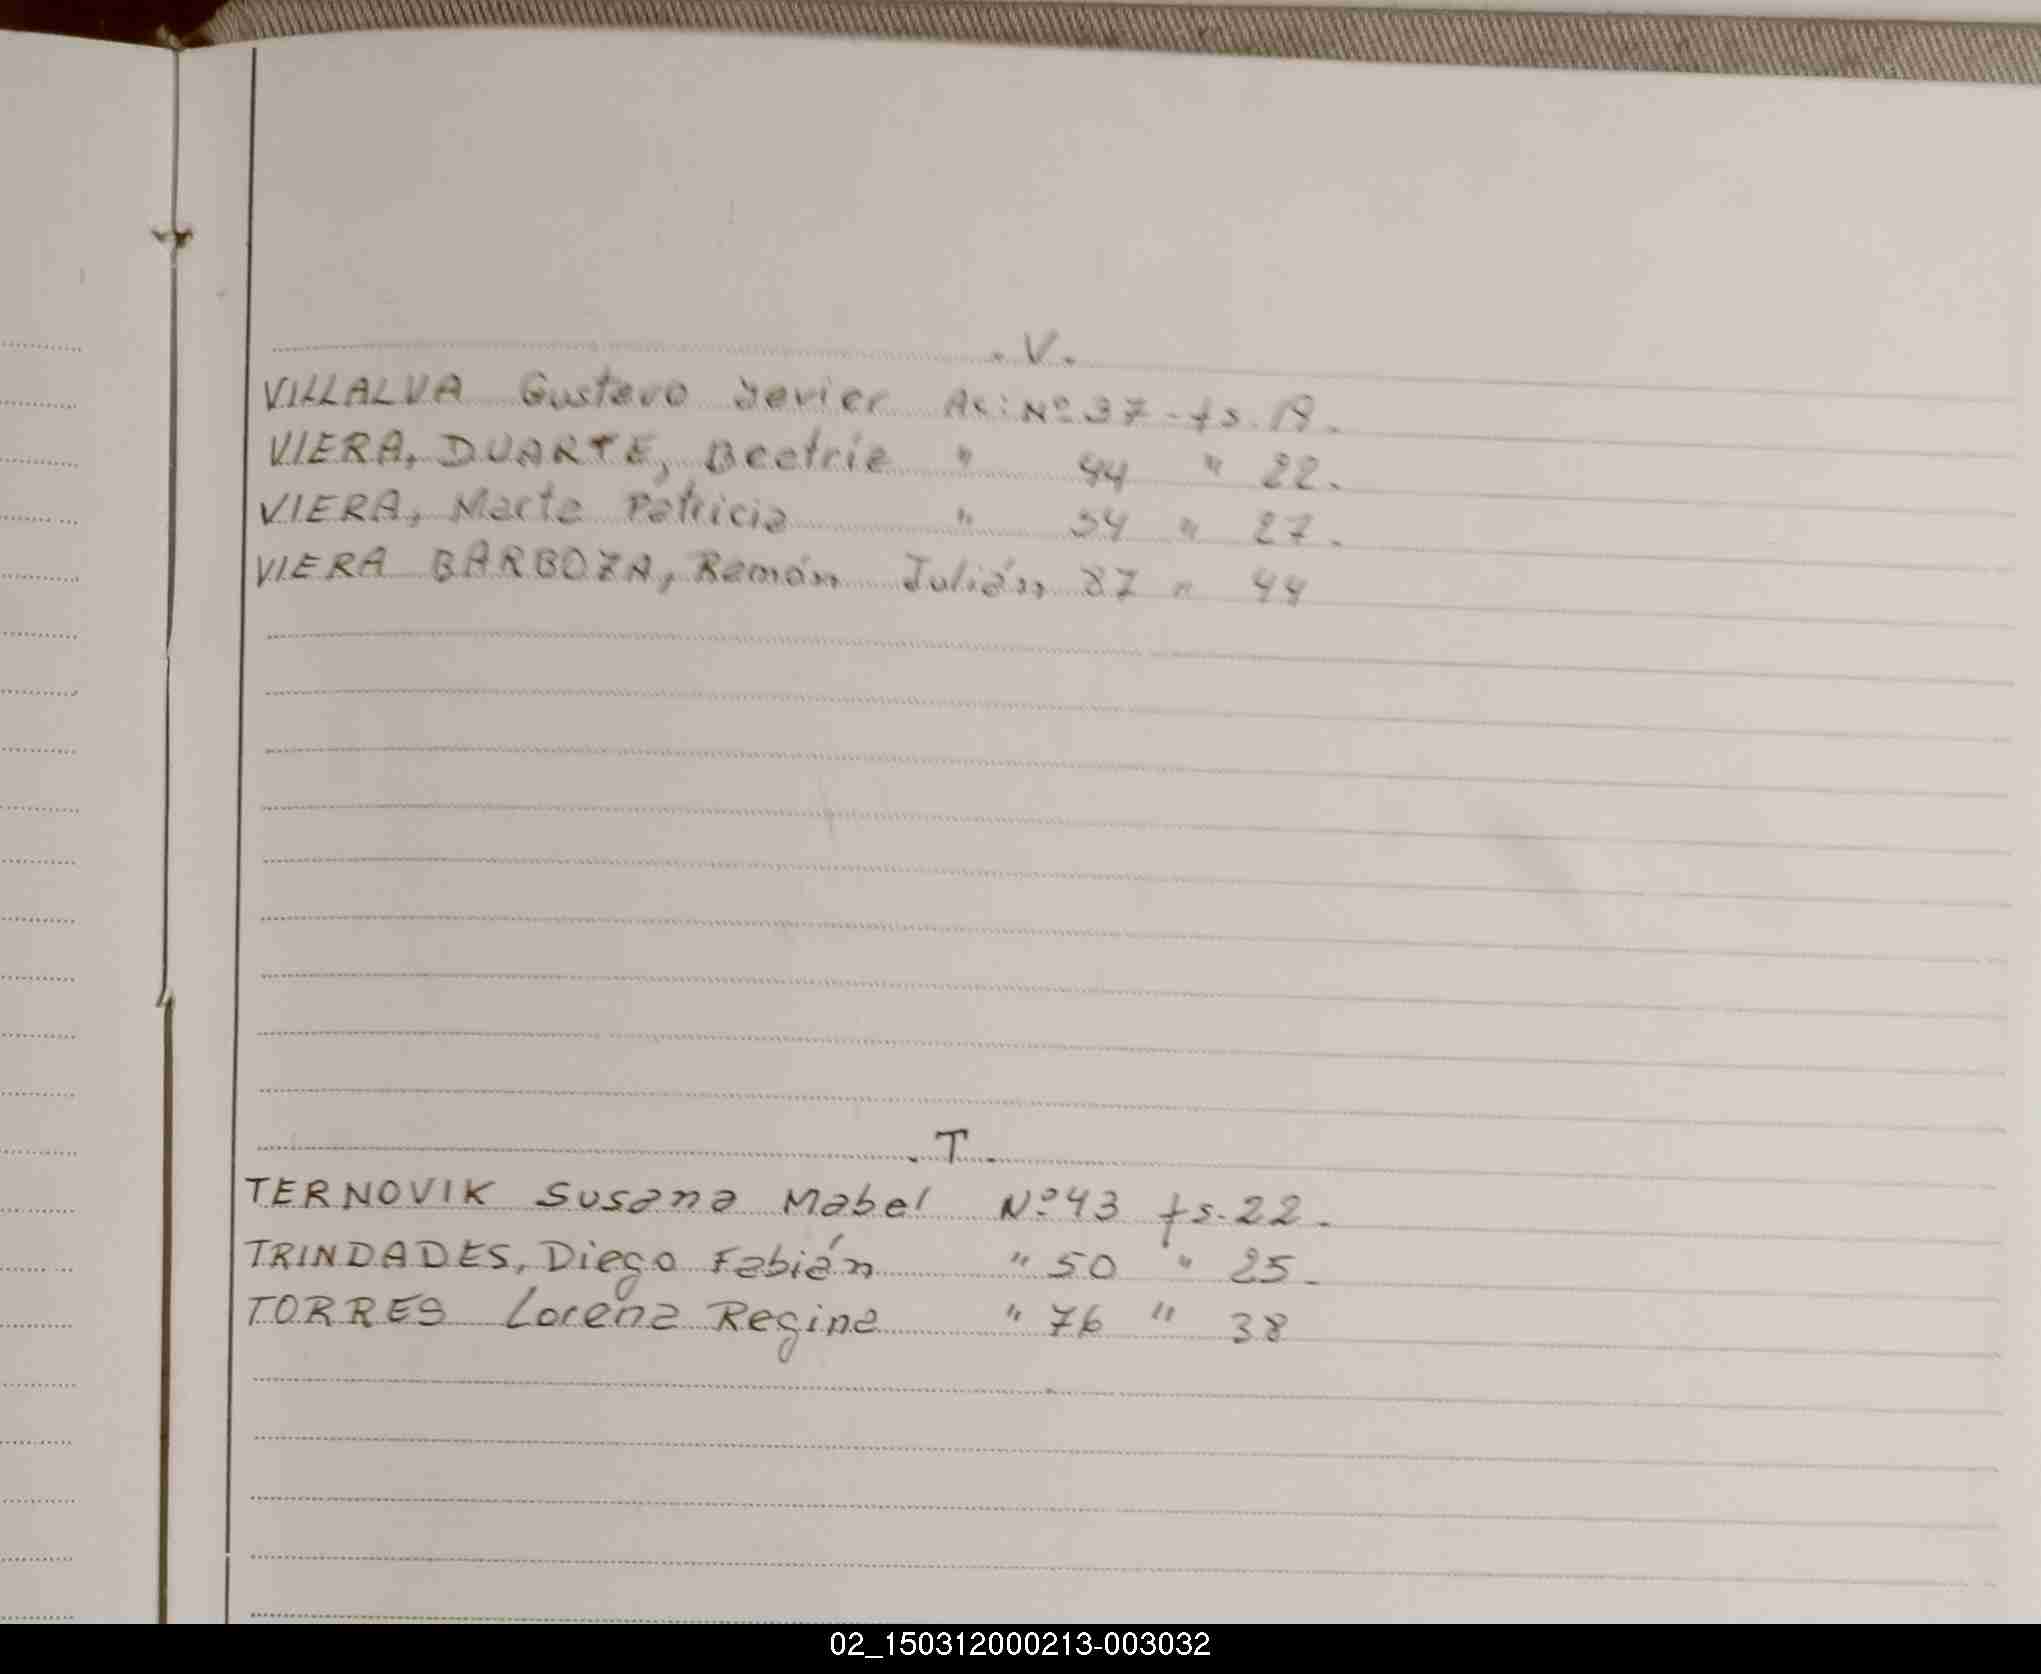 . V .
VILLALVA Gustavo Javier Ac: Nº 37 - fs. 19.
VIERA, DUARTE, Beatriz " 44 " 22.
VIERA, Marta Patricia " 54 " 27.
VIERA BARBOZA, Ramón Julián 87 " 44
. T .
TERNOVIK Susana Mabel Nº 43 fs. 22.
TRINDADES, Diego Fabián " 50 " 25.
TORRES Lorena Regina " 76 " 38
02_150312000213-003032